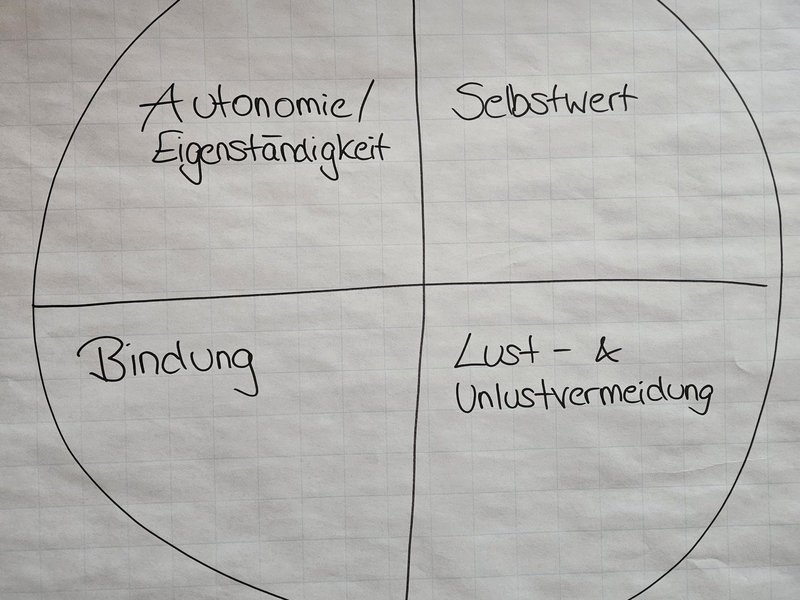 Autonomie/
Eigenständigkeit
Selbstwert
Bindung
Lust- &
Unlustvermeidung